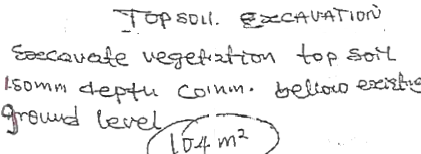 TOPSOIL. EXCAVATION
Excavate vegetation top soil
150mm depth comm. bellow existing
ground level
104 m²